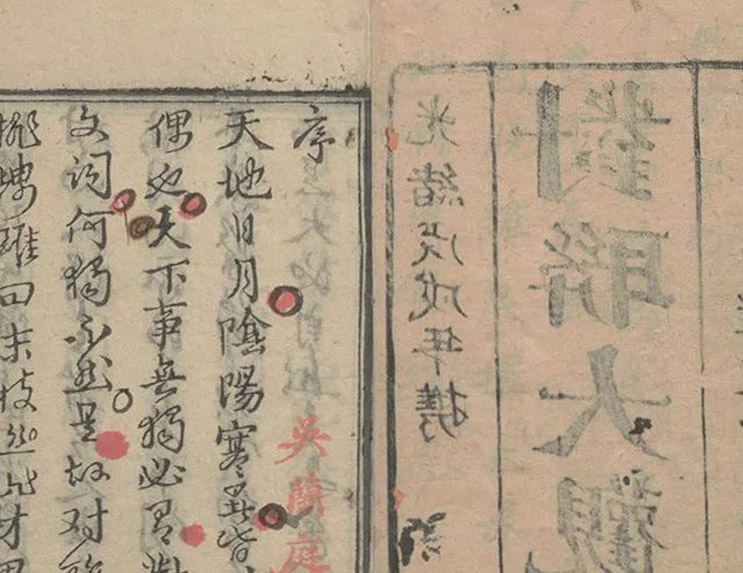 對聯大觀
光緒戊戌年携
序
吳蘭庭
天地日月陰陽寒暑皆
偶也天下事無獨必有對
文詞何獨不然是故对聯
雖曰末技